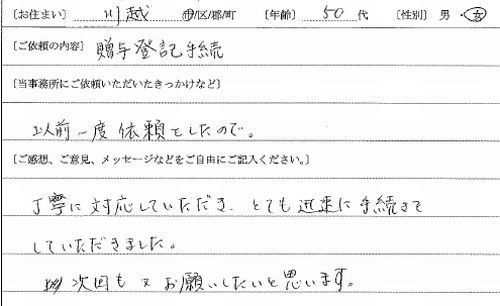 〔お住まい〕 川越 市/区/郡/町 〔年齢〕 50 代 〔性別〕 男・女
〔ご依頼の内容〕 贈与登記手続
〔当事務所にご依頼いただいたきっかけなど〕
以前一度依頼をしたので。
〔ご感想、ご意見、メッセージなどをご自由にご記入ください。〕
丁寧に対応していただき、とても迅速に手続きを
していただきました。
次回も又お願いしたいと思います。